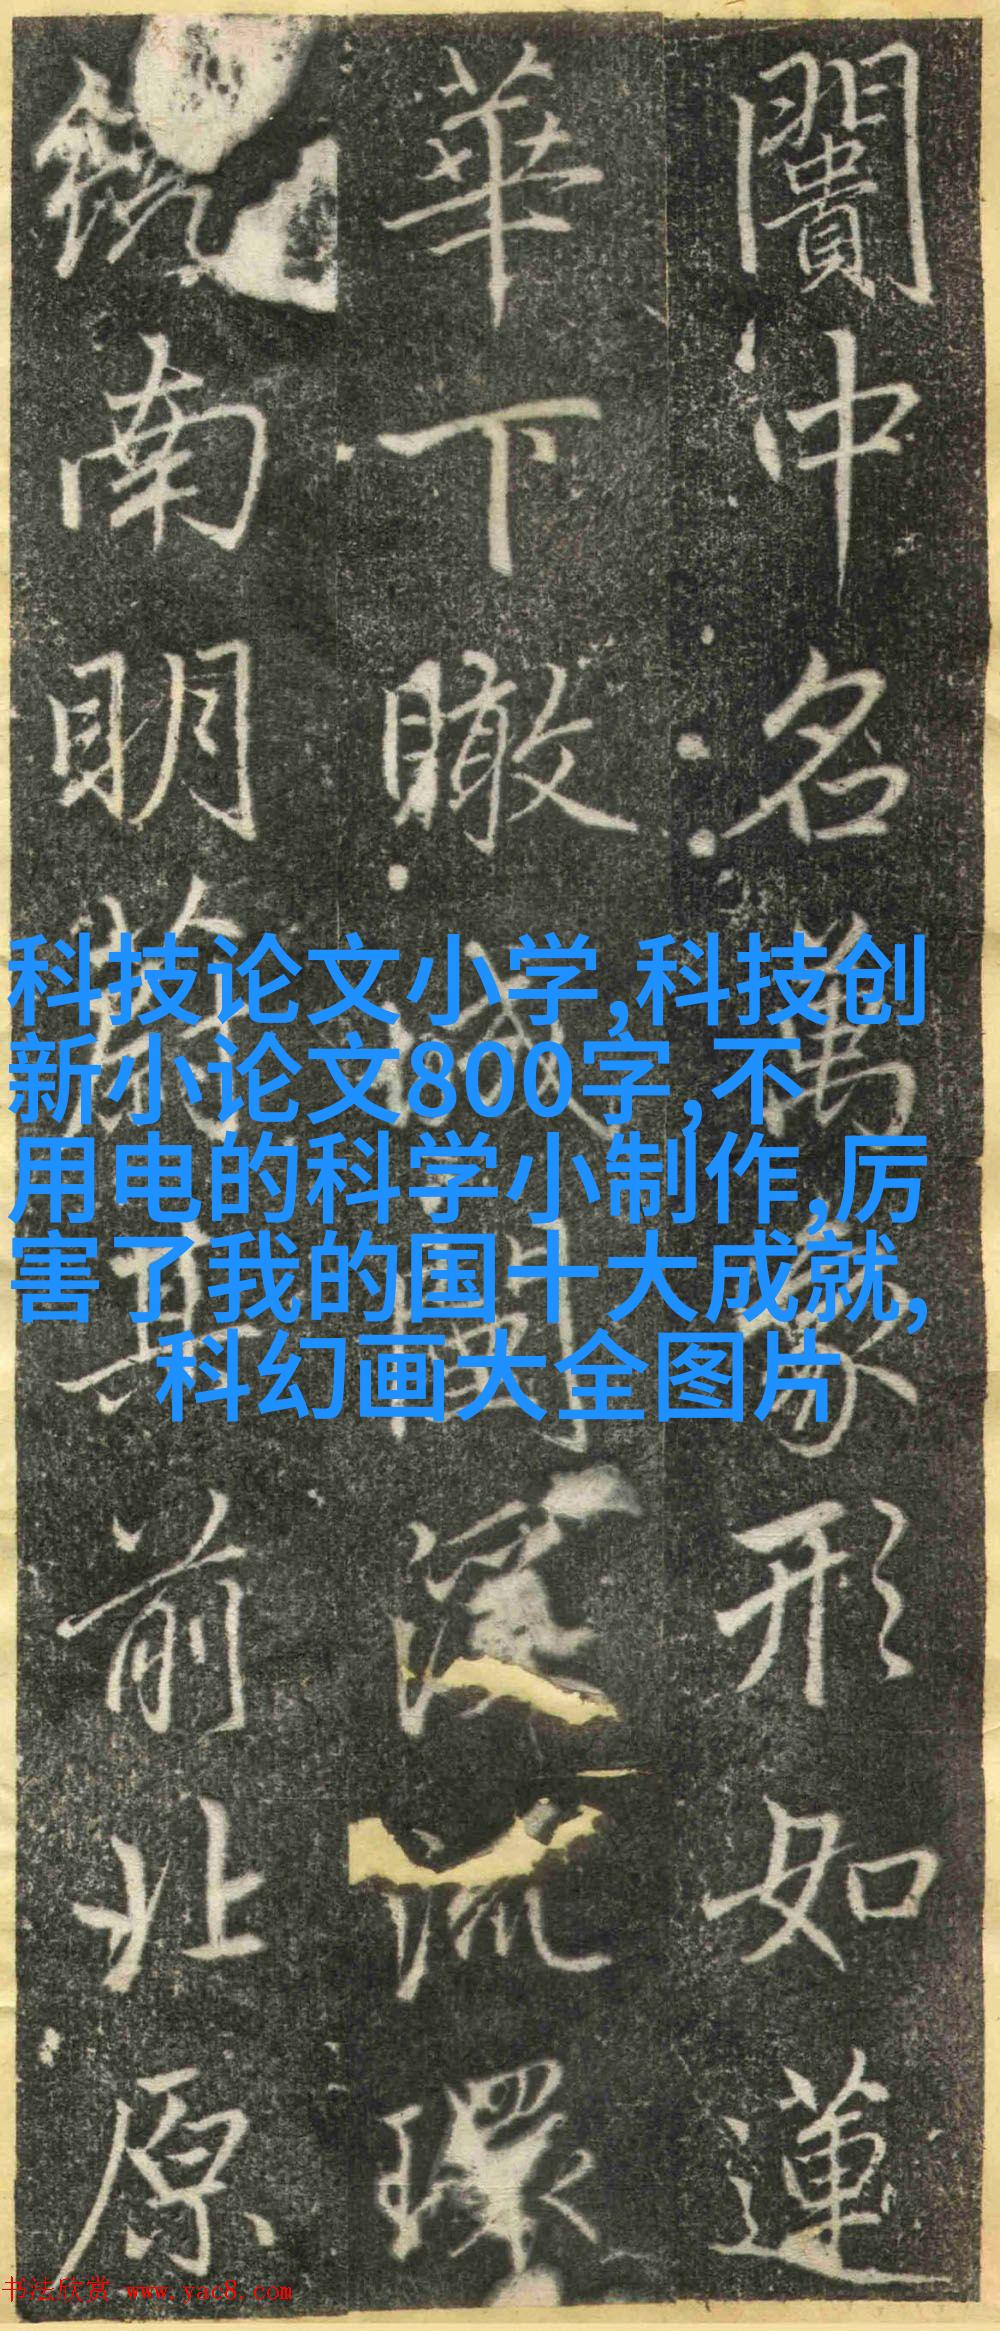 闠中名萬家形如蓮
華下瞰城深流環
鏡南明其前北原
科技论文小学,科技创
新小论文800字,不
用电的科学小制作,厉
害了我的国十大成就,
科幻画大全图片
书法欣赏 www.yac8.com